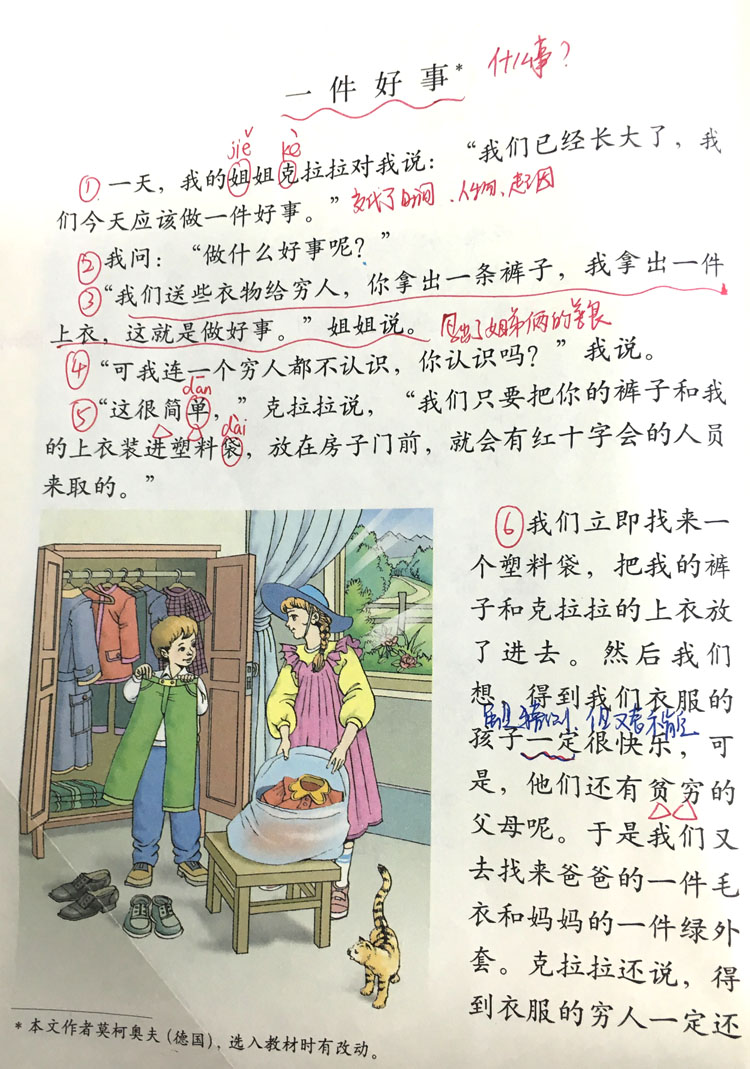 一件好事* 什么事？
jiě kè
①一天，我的姐姐克拉拉对我说：“我们已经长大了，我
们今天应该做一件好事。” 交代了时间、人物、起因
②我问：“做什么好事呢？”
③“我们送些衣物给穷人，你拿出一条裤子，我拿出一件
上衣，这就是做好事。”姐姐说。
④“可我连一个穷人都不认识，你认识吗？”我说。
dān dài
⑤“这很简单，”克拉拉说，“我们只要把你的裤子和我
的上衣装进塑料袋，放在房子门前，就会有红十字会的人员
来取的。”
⑥我们立即找来一
个塑料袋，把我的裤
子和克拉拉的上衣放
了进去。然后我们
想，得到我们衣服的
孩子一定很快乐，可
是，他们还有贫穷的
父母呢。于是我们又
去找来爸爸的一件毛
衣和妈妈的一件绿外
套。克拉拉还说，得
到衣服的穷人一定还
*本文作者莫柯奥夫（德国），选入教材时有改动。